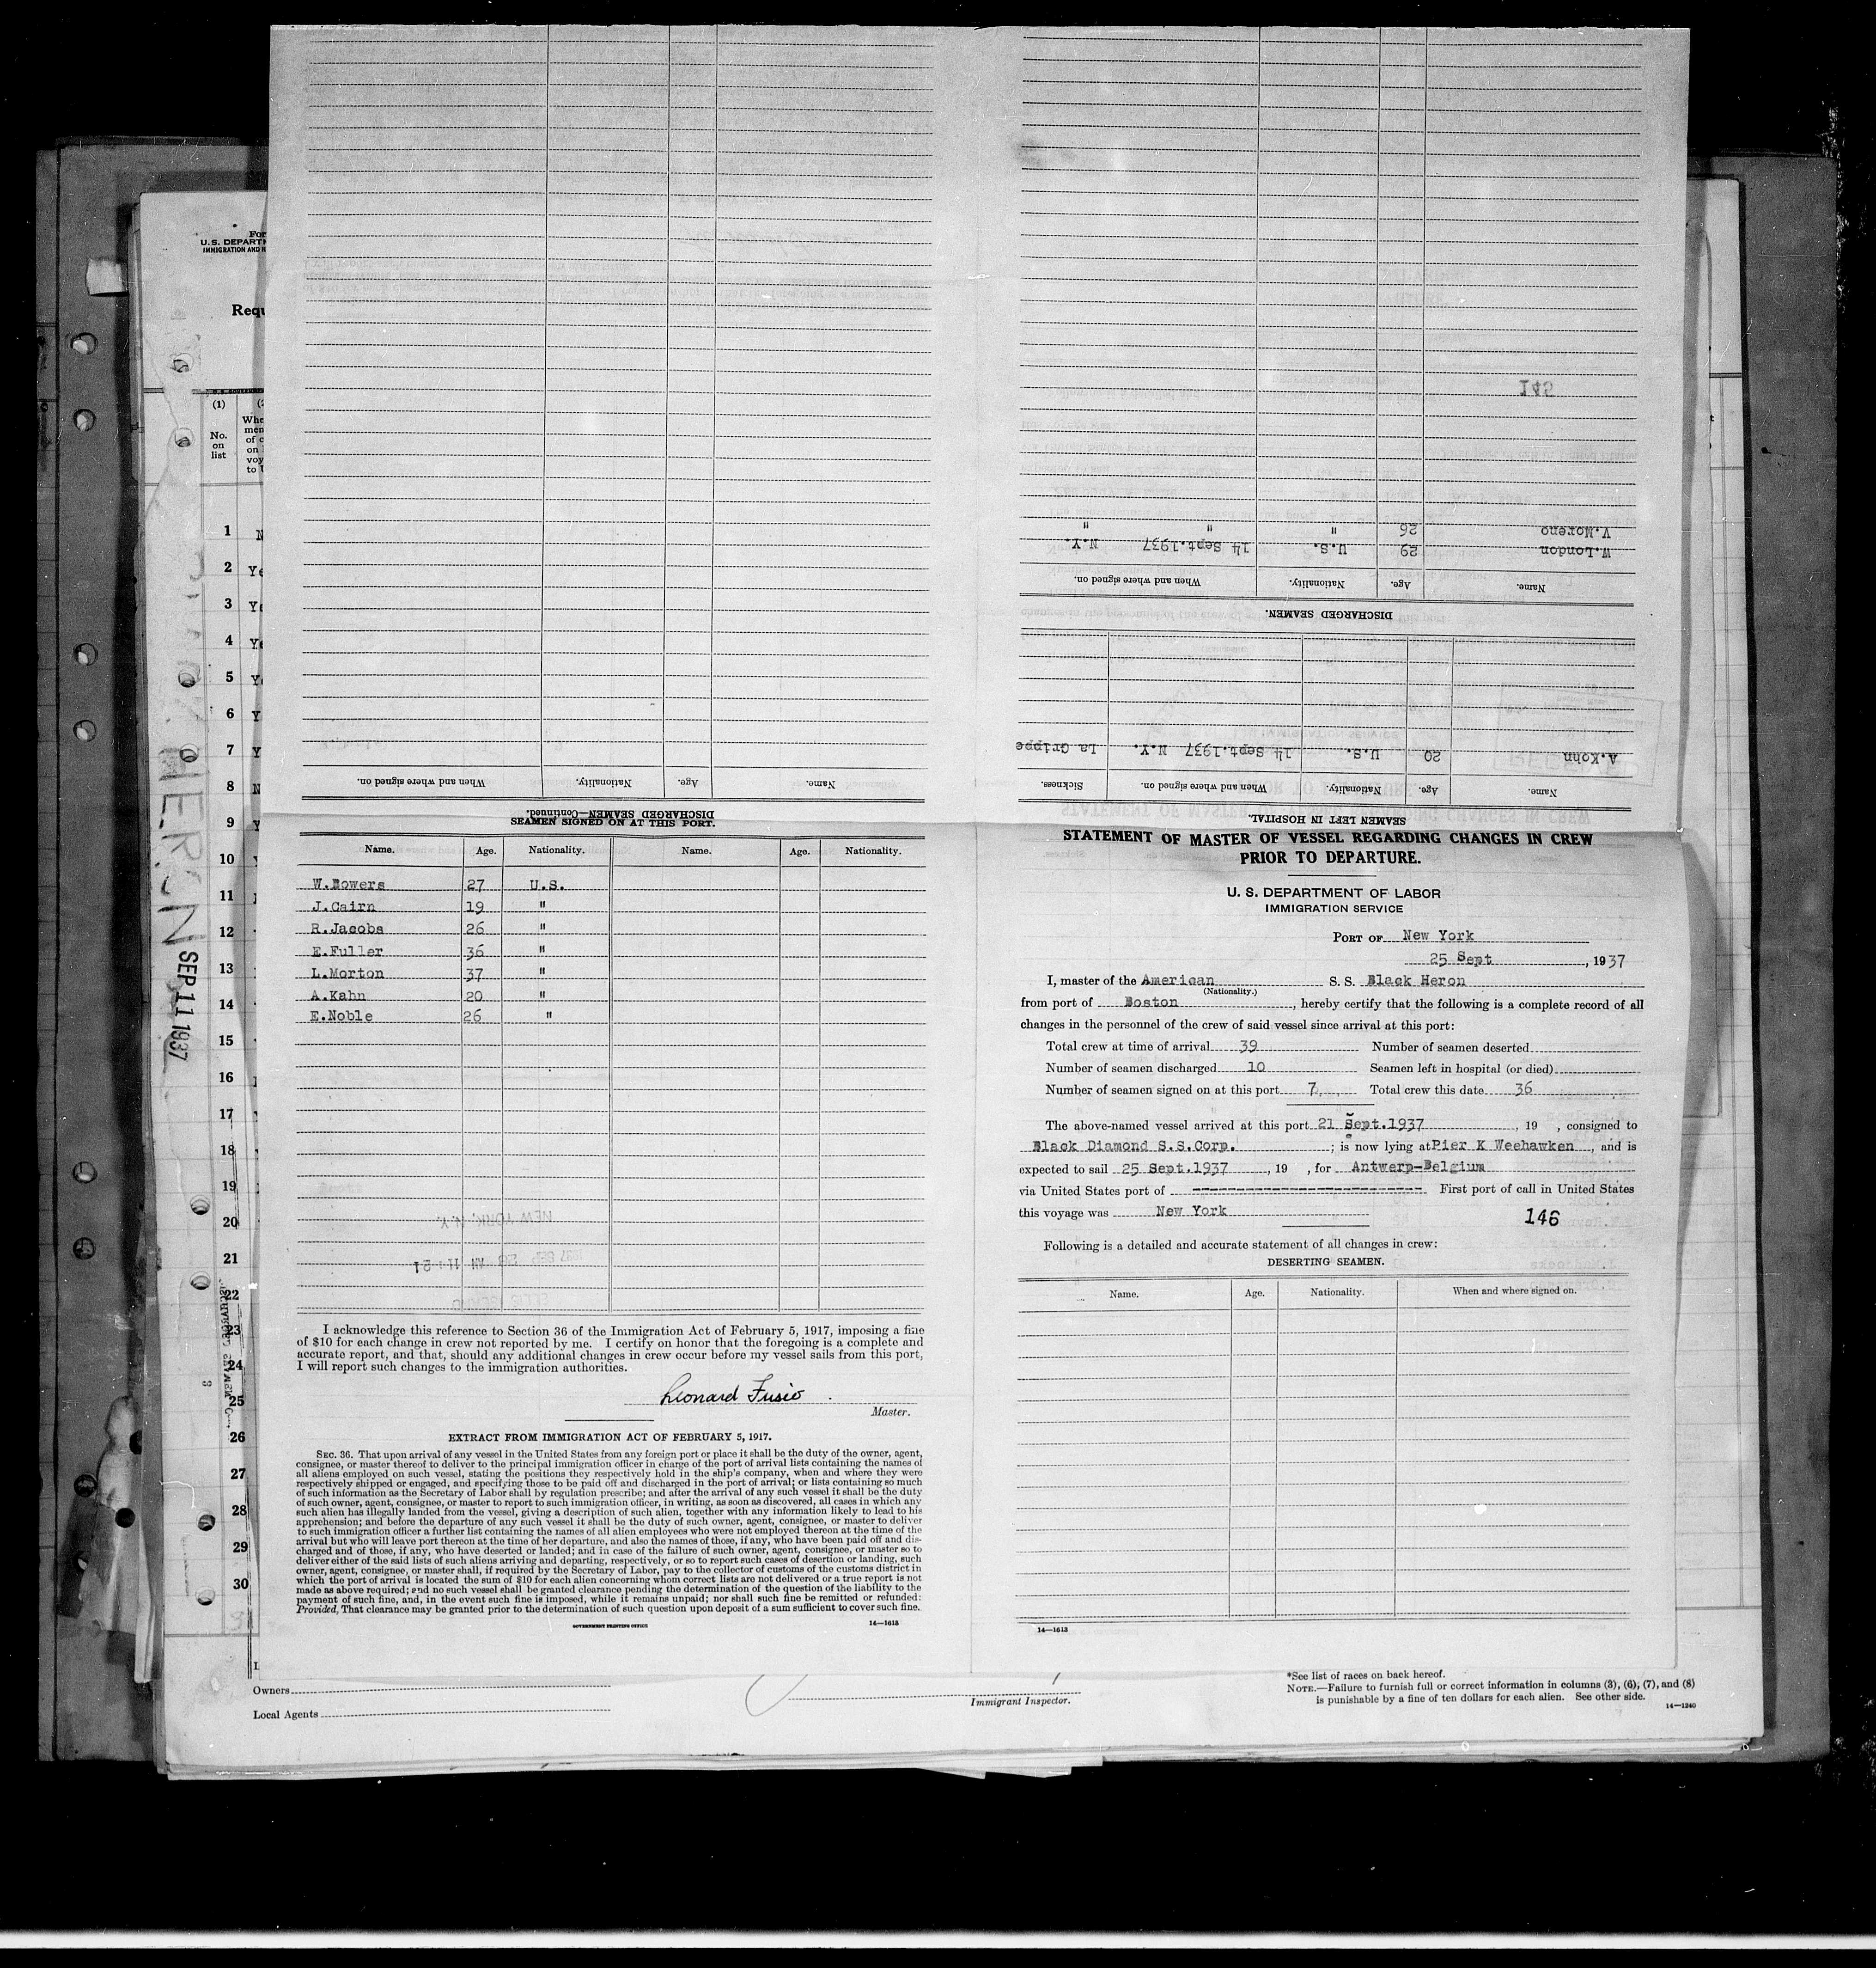 For
U. S. DEPARTM
IMMIGRATION AND N
Requ
(1)
No.
on
list
Whe
men
of c
on
voy
to U
1 N
2 Ye
3 Ye
4 Ye
5 Ye
6 Y
7 Y
8 N
9 Y
10
11
12
13
14
15
16
17
18
19
20
21
22
23
24
25
26
27
28
29
30
HERON
SEP 11 1937
DISCHARGED SEAMEN—Continued.
Name. Age. Nationality. When and where signed on.
SEAMEN LEFT IN HOSPITAL.
Name. Age. Nationality. When and where signed on. Sickness.
A.Kohn 20 U.S. 14 Sept.1937 N.Y. La Grippe
DISCHARGED SEAMEN.
Name. Age. Nationality. When and where signed on.
W.London 29 U.S. 14 Sept.1937 N.Y.
V.Moreno 26 " " "
145
SEAMEN SIGNED ON AT THIS PORT.
Name. Age. Nationality. Name. Age. Nationality.
W.Bowers 27 U.S.
J.Cairn 19 "
R.Jacobs 26 "
E.Fuller 36 "
L.Morton 37 "
A.Kahn 20 "
E.Noble 26 "
NEW YORK, N.Y.
AM 11:51
ELLIS ISLAND
I acknowledge this reference to Section 36 of the Immigration Act of February 5, 1917, imposing a fine
of $10 for each change in crew not reported by me. I certify on honor that the foregoing is a complete and
accurate report, and that, should any additional changes in crew occur before my vessel sails from this port,
I will report such changes to the immigration authorities.
Leonard Fusio
Master.
EXTRACT FROM IMMIGRATION ACT OF FEBRUARY 5, 1917.
SEC. 36. That upon arrival of any vessel in the United States from any foreign port or place it shall be the duty of the owner, agent,
consignee, or master thereof to deliver to the principal immigration officer in charge of the port of arrival lists containing the names of
all aliens employed on such vessel, stating the positions they respectively hold in the ship's company, when and where they were
respectively shipped or engaged, and specifying those to be paid off and discharged in the port of arrival; or lists containing so much
of such information as the Secretary of Labor shall by regulation prescribe; and after the arrival of any such vessel it shall be the duty
of such owner, agent, consignee, or master to report to such immigration officer, in writing, as soon as discovered, all cases in which any
such alien has illegally landed from the vessel, giving a description of such alien, together with any information likely to lead to his
apprehension; and before the departure of any such vessel it shall be the duty of such owner, agent, consignee, or master to deliver
to such immigration officer a further list containing the names of all alien employees who were not employed thereon at the time of the
arrival but who will leave port thereon at the time of her departure, and also the names of those, if any, who have been paid off and dis-
charged and of those, if any, who have deserted or landed; and in case of the failure of such owner, agent, consignee, or master so to
deliver either of the said lists of such aliens arriving and departing, respectively, or so to report such cases of desertion or landing, such
owner, agent, consignee, or master shall, if required by the Secretary of Labor, pay to the collector of customs of the customs district in
which the port of arrival is located the sum of $10 for each alien concerning whom correct lists are not delivered or a true report is not
made as above required; and no such vessel shall be granted clearance pending the determination of the question of the liability to the
payment of such fine, and, in the event such fine is imposed, while it remains unpaid; nor shall such fine be remitted or refunded:
Provided, That clearance may be granted prior to the determination of such question upon deposit of a sum sufficient to cover such fine.
GOVERNMENT PRINTING OFFICE 14—1613
STATEMENT OF MASTER OF VESSEL REGARDING CHANGES IN CREW
PRIOR TO DEPARTURE.
U. S. DEPARTMENT OF LABOR
IMMIGRATION SERVICE
PORT OF New York
25 Sept , 1937
I, master of the American S. S. Black Heron
(Nationality.)
from port of Boston , hereby certify that the following is a complete record of all
changes in the personnel of the crew of said vessel since arrival at this port:
Total crew at time of arrival 39 Number of seamen deserted
Number of seamen discharged 10 Seamen left in hospital (or died)
Number of seamen signed on at this port 7 Total crew this date 36
The above-named vessel arrived at this port 21 Sept.1937 , 19 , consigned to
Black Diamond S.S.Corp. ; is now lying at Pier K Weehawken , and is
expected to sail 25 Sept.1937 , 19 , for Antwerp-Belgium
via United States port of ---------------- First port of call in United States
this voyage was New York
146
Following is a detailed and accurate statement of all changes in crew:
DESERTING SEAMEN.
Name. Age. Nationality. When and where signed on.
14—1613
Owners
Local Agents
Immigrant Inspector.
*See list of races on back hereof.
NOTE.—Failure to furnish full or correct information in columns (3), (6), (7), and (8)
is punishable by a fine of ten dollars for each alien. See other side.
14—1240